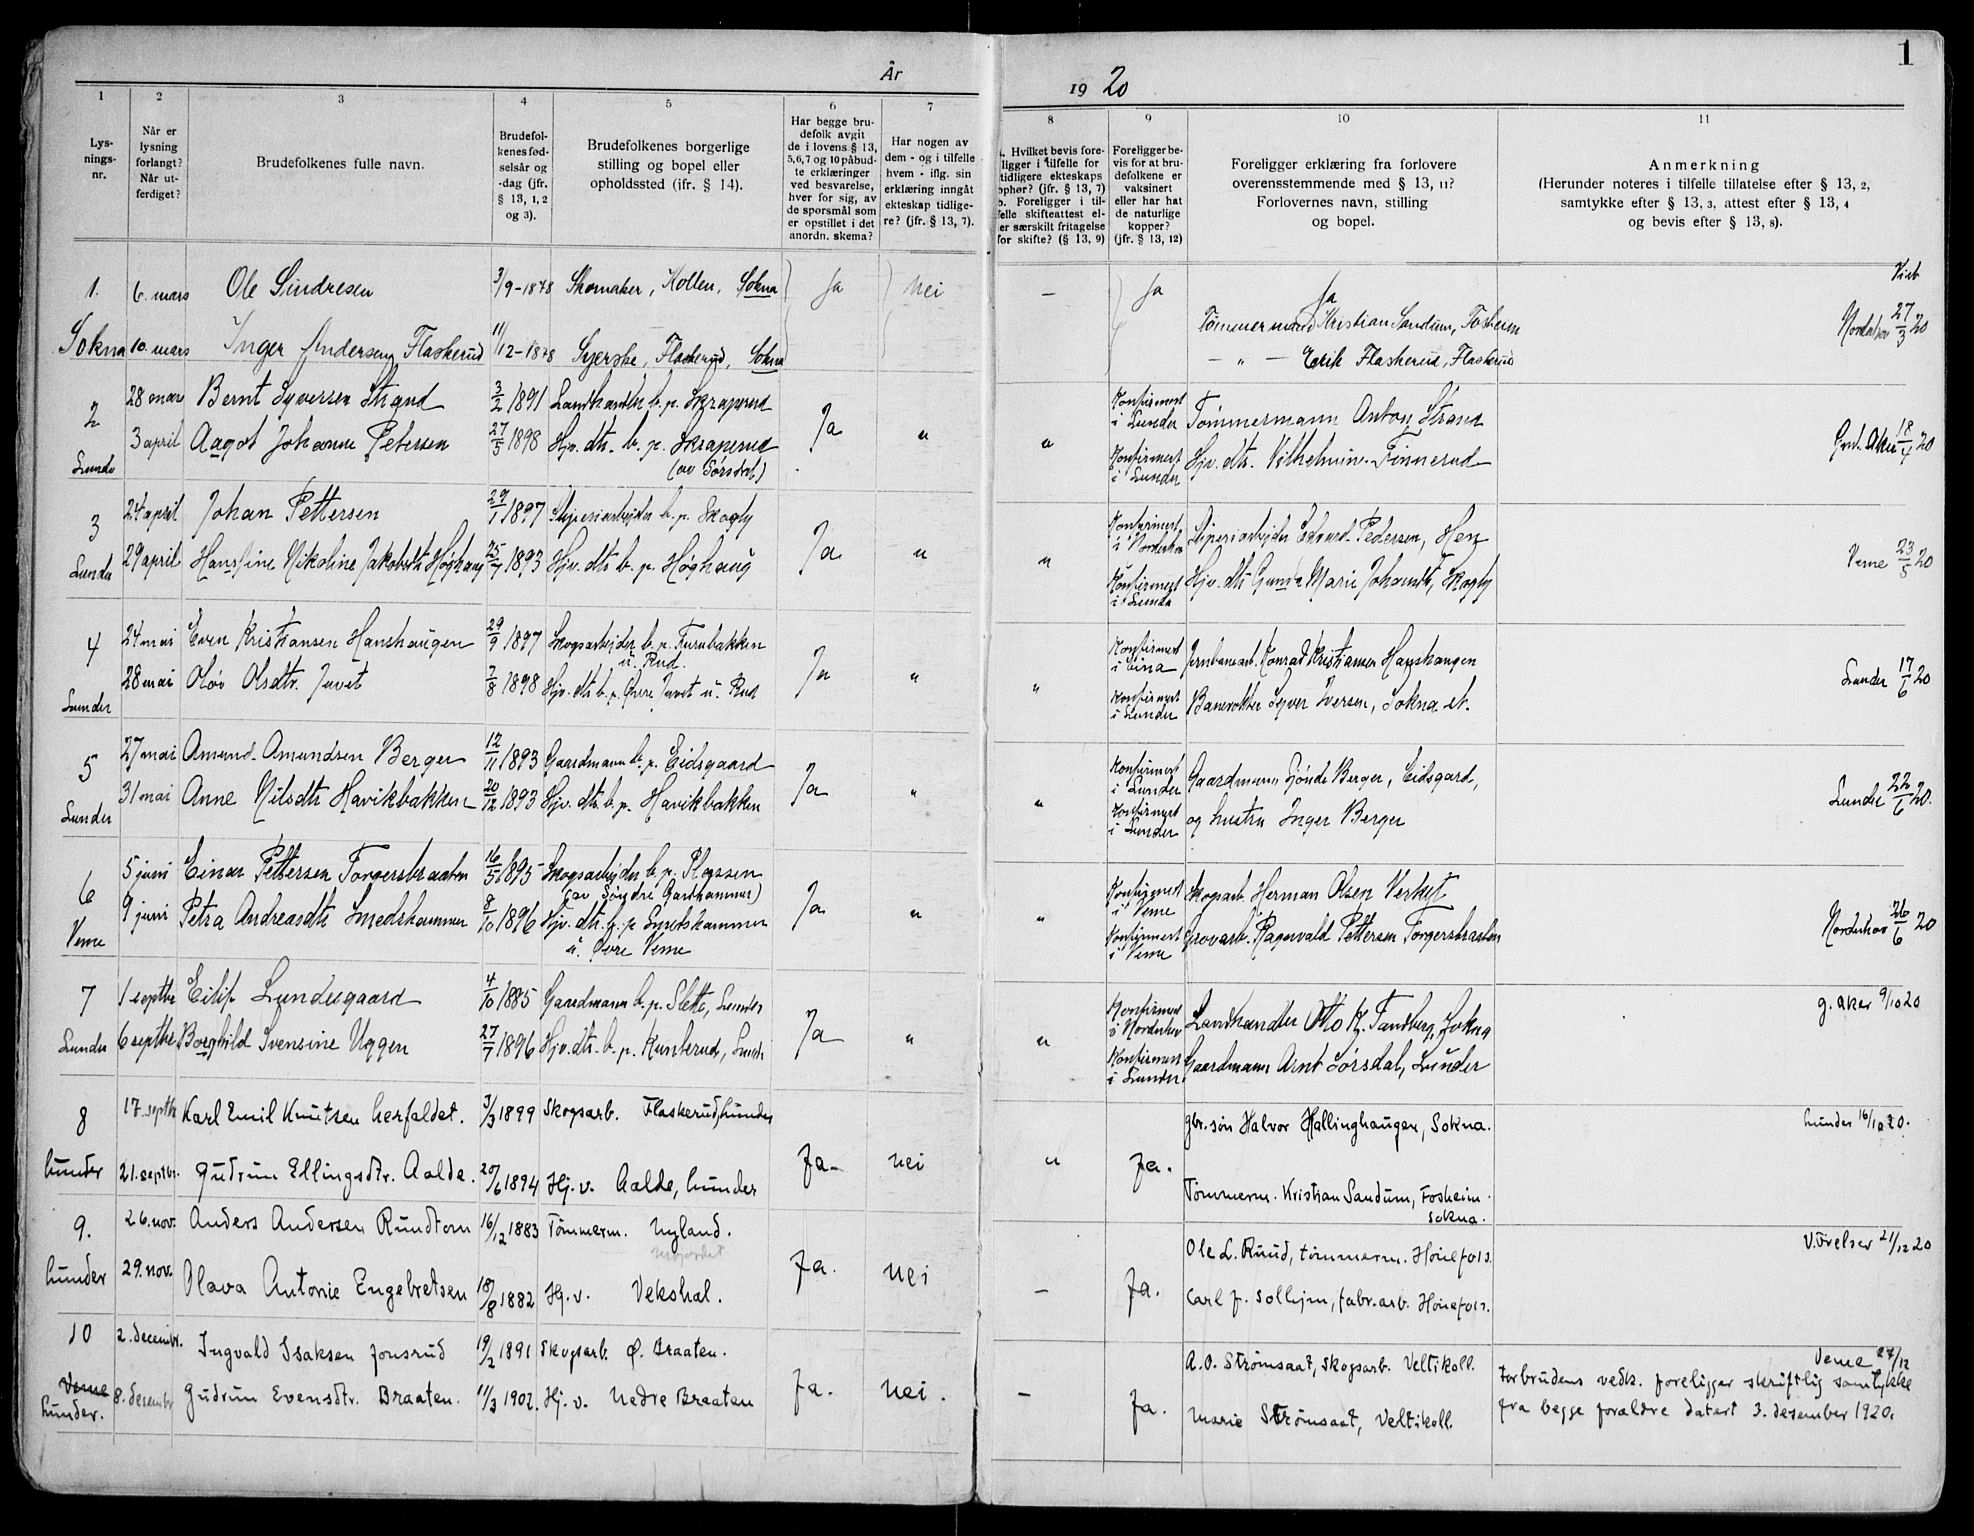 1
År 1920
1 2 3 4 5 6 7 8 9 10 11
Lysningsnr.
Når er lysning forlangt? Når utferdiget?
Brudefolkenes fulle navn.
Brudefolkenes fødselsår og -dag (jfr. § 13, 1, 2 og 3).
Brudefolkenes borgerlige stilling og bopel eller opholdssted (ifr. § 14).
Har begge brudefolk avgit de i lovens § 13, 5, 6, 7 og 10 påbudte erklæringer ved besvarelse, hver for sig, av de spørsmål som er opstillet i det anordn. skema?
Har nogen av dem - og i tilfelle hvem - iflg. sin erklæring inngåt ekteskap tidligere? (jfr. § 13, 7).
Hvilket bevis foreligger i tilfelle for tidligere ekteskaps ophør? (jfr. § 13, 7) b. Foreligger i tilfelle skifteattest eller særskilt fritagelse for skifte? (§ 13, 9)
Foreligger bevis for at brudefolkene er vaksinert eller har hat de naturlige kopper? (jfr. § 13, 12)
Foreligger erklæring fra forlovere overensstemmende med § 13, 11? Forlovernes navn, stilling og bopel.
Anmerkning (Herunder noteres i tilfelle tillatelse efter § 13, 2, samtykke efter § 13, 3, attest efter § 13, 4 og bevis efter § 13, 8).
1. 6. mars Ole Sindresen 3/9-1878 Skomaker, Kollen, Sokna Ja Nei — Ja Ja
Tømmermand Kristian Sandum, Fosheim Norderhov 27/3 20
Sokna 10. mars Inger Andersen Flaskerud 11/12-1878 Syerske, Flaskerud, Sokna — " — Erik Flaskerud, Flaskerud
2 28 mars Bernt Syversen Strand 3/2 1891 Landhandler b. p. Skraperud Ja " " Konfirmert i Lunder Tømmermann Anton Strand
3 april Aagot Johanne Petersen 27/5 1898 Hjv. dtr. b. p. Skraperud (av Sørsdal) Konfirmert i Lunder Hjv. dtr. Vilhelmine Finnerud 18/4 20
Lunder
3 24 april Johan Pettersen 29/1 1897 Sliperiarbejder b. p. Skogly Ja " " Konfirmert i Norderhov Sliperiarbejder Edvard Pedersen, Hen
Lunder 29 april Hansine Nikoline Jakobsdtr Høghaug 25/7 1893 Hjv. dtr b. p. Høghaug Konfirmert i Lunder Hjv. dtr Gunda Marie Johansdtr, Skogly Veme 23/5 20
4 24 mai Even Kristiansen Hanshaugen 29/9 1897 Skogsarbejder b. p. Furubakken u. Rud. Ja " " Konfirmert i Eina Jernbanearb. Konrad Kristiansen Hanshaugen
Lunder 28 mai Oløv Olsdtr. Juvet 7/8 1898 Hjv. dtr b. p. Øvre Juvet u. Rud Konfirmert i Lunder Banevokter Syver Iversen, Sokna st. Lunder 17/6 20
5 27 mai Amund Amundsen Berger 12/11 1893 Gaardmann b. p. Eidsgaard Ja " " Konfirmert i Lunder Gaardmann Gjønde Berger, Eidsgard,
Lunder 31 mai Anne Nilsdtr Havikbakken 20/12 1893 Hjv. dtr. b. p. Havikbakken Konfirmert i Lunder og hustru Inger Berger Lunder 22/6 20.
6 5 juni Einar Pettersen Torgersbraaten 16/5 1895 Skogsarbejder b. p. Plassen (av Søndre Gardhammer) Ja " " Konfirmert i Veme Skogsarb. Herman Olsen Verket
Veme 9 juni Petra Andreasdtr Smedshammer 8/10 1896 Hjv. dtr. b. p. Smedshammer u. Øvre Veme Konfirmert i Veme Grovarb. Ragnvald Pettersen Torgersbraaten Norderhov 26/6 20
7 1 septbr Eilif Lundesgaard 4/10 1885 Gaardmann b. p. Slette, Lunder Ja " " Konfirmert i Norderhov Landhandler Otto K. Tandberg, Sokna g. aker 9/10 20
Lunder 6 septbr Borghild Svensine Uggen 27/7 1896 Hjv. dtr. b. p. Kunterud, Lunder Konfirmert i Lunder Gaardmann Arnt Sørsdal, Lunder
8 17. septbr Karl Emil Knutsen Herfaldet. 3/3 1899 Skogsarb. Flaskerud, Lunder gbr.søn Halvor Hallinghaugen, Sokna. Lunder 16/10 20.
Lunder 21. septbr. Gudrun Ellingsdtr. Aalde. 20/6 1894 Hj. v. Aalde, Lunder Ja Nei " Ja. Tømmerm. Kristian Sandum, Fosheim. Sokna.
9. 26. nov. Anders Andersen Rundtom 16/12 1883 Tømmerm. Nyland. Ole L. Ruud, tømmerm. Hønefoss. V. Frelser 21/12 20
Lunder 29. nov. Olava Antonie Engebretsen 18/8 1882 Hj. v. Vekshal. Ja. Nei — Ja. Carl J. Solhjem, fabr.arb. Hønefoss.
10 2. decembr. Ingvald Isaksen Jonsrud 19/2 1891 Skogsarb. Ø. Braaten. A. O. Strømsaat, Skogsarb. Veltikoll. Veme 27/12
Veme Lunder. 8. desembr Gudrun Evensdtr. Braaten. 11/3 1902. Hj. v. Nedre Braaten Ja. Nei. — Ja. Marie Strømsaat, Veltikoll.
For brudens vedk. foreligger skriftlig samtykke
fra begge forældre datert 3. desember 1920.